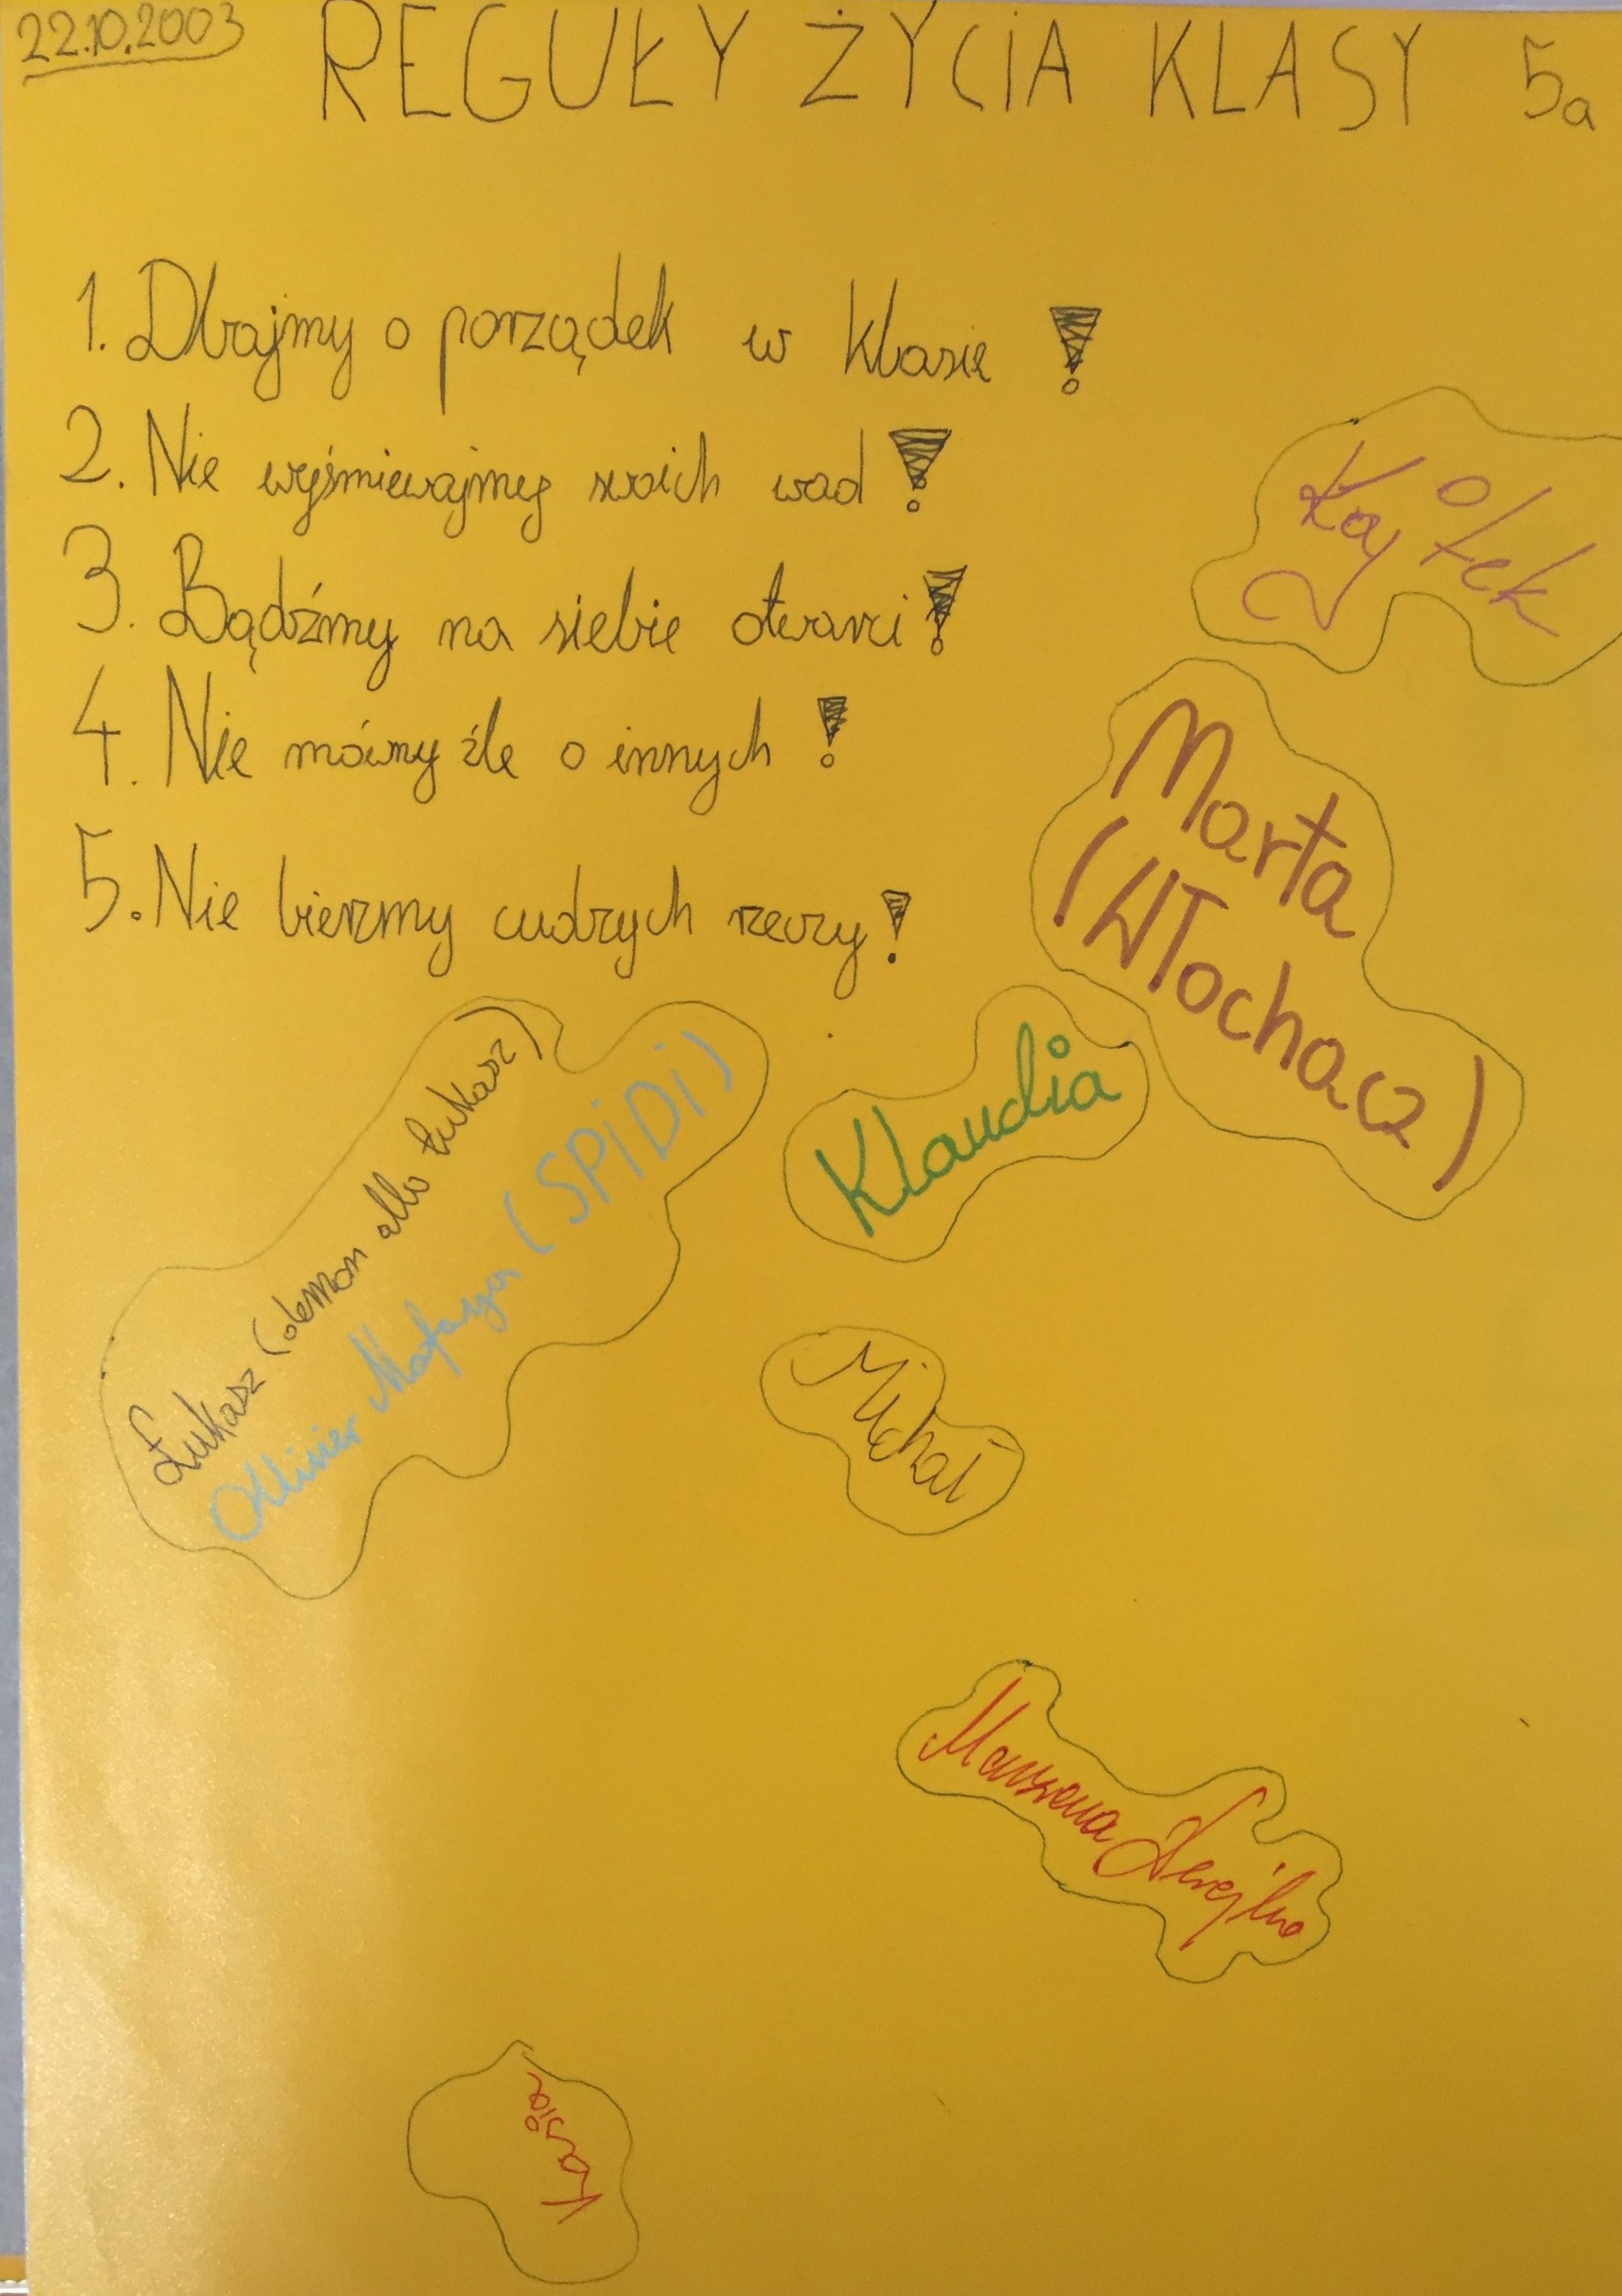 22.10.2003
REGUŁY ŻYCIA KLASY 5a
1. Dbajmy o porządek w klasie!
2. Nie wyśmiewajmy swoich wad!
3. Bądźmy na siebie otwarci!
4. Nie mówmy źle o innych!
5. Nie bierzmy cudzych rzeczy!
Kajtek
Marta
(Włochacz)
Klaudia
Łukasz (demon albo Łukasz)
(SPiDi)
Michał
Marzena
Kasia